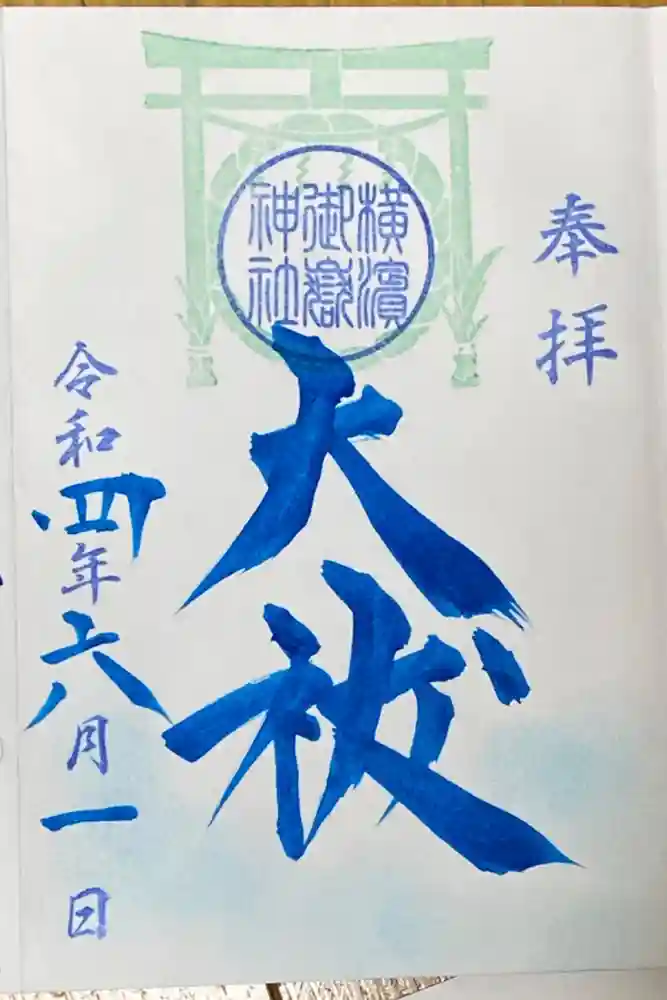 奉拝
横濱
御嶽
神社
大祓
令和四年六月一日